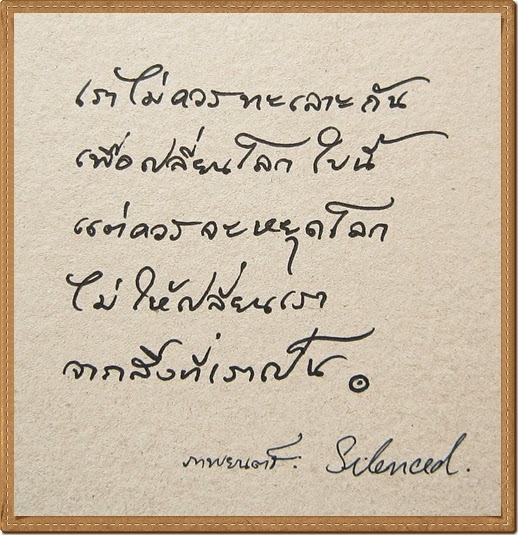 เราไม่ควรทะเลาะกัน
เพื่อเปลี่ยนโลกใบนี้
แต่ควรจะหยุดโลก
ไม่ให้เปลี่ยนเรา
จากสิ่งที่เราเป็น
ภาพยนตร์: Silenced.